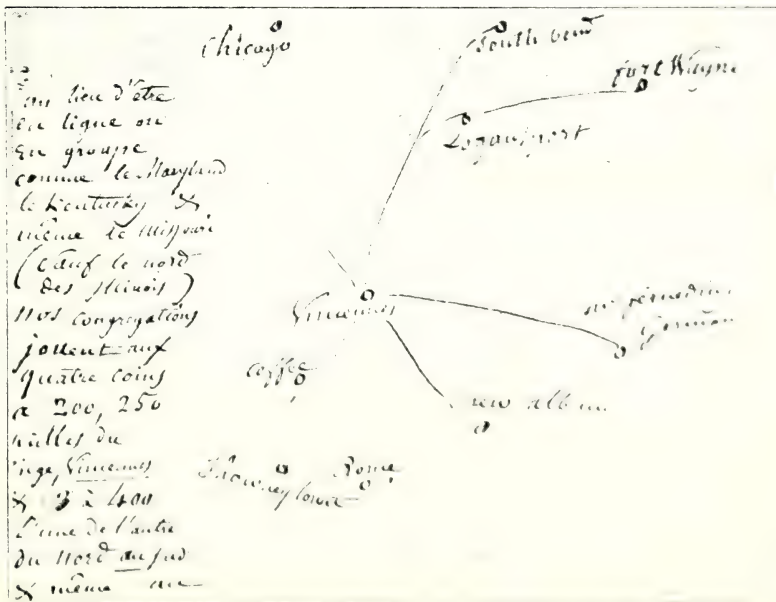 Chicago
South bend
fort Wayne
Logansport
au lieu d'être
en ligne ou
en groupe
comme le Maryland
le Kentucky &
même le Missouri
(sauf le nord
des Illinois)
nos congregations
jouent aux
quatre coins
a 200, 250
milles du
Vincennes
& 3 à 400
l'une de l'autre
du nord au sud
& même au
Vincennes
german
coffee
new alban
Rome